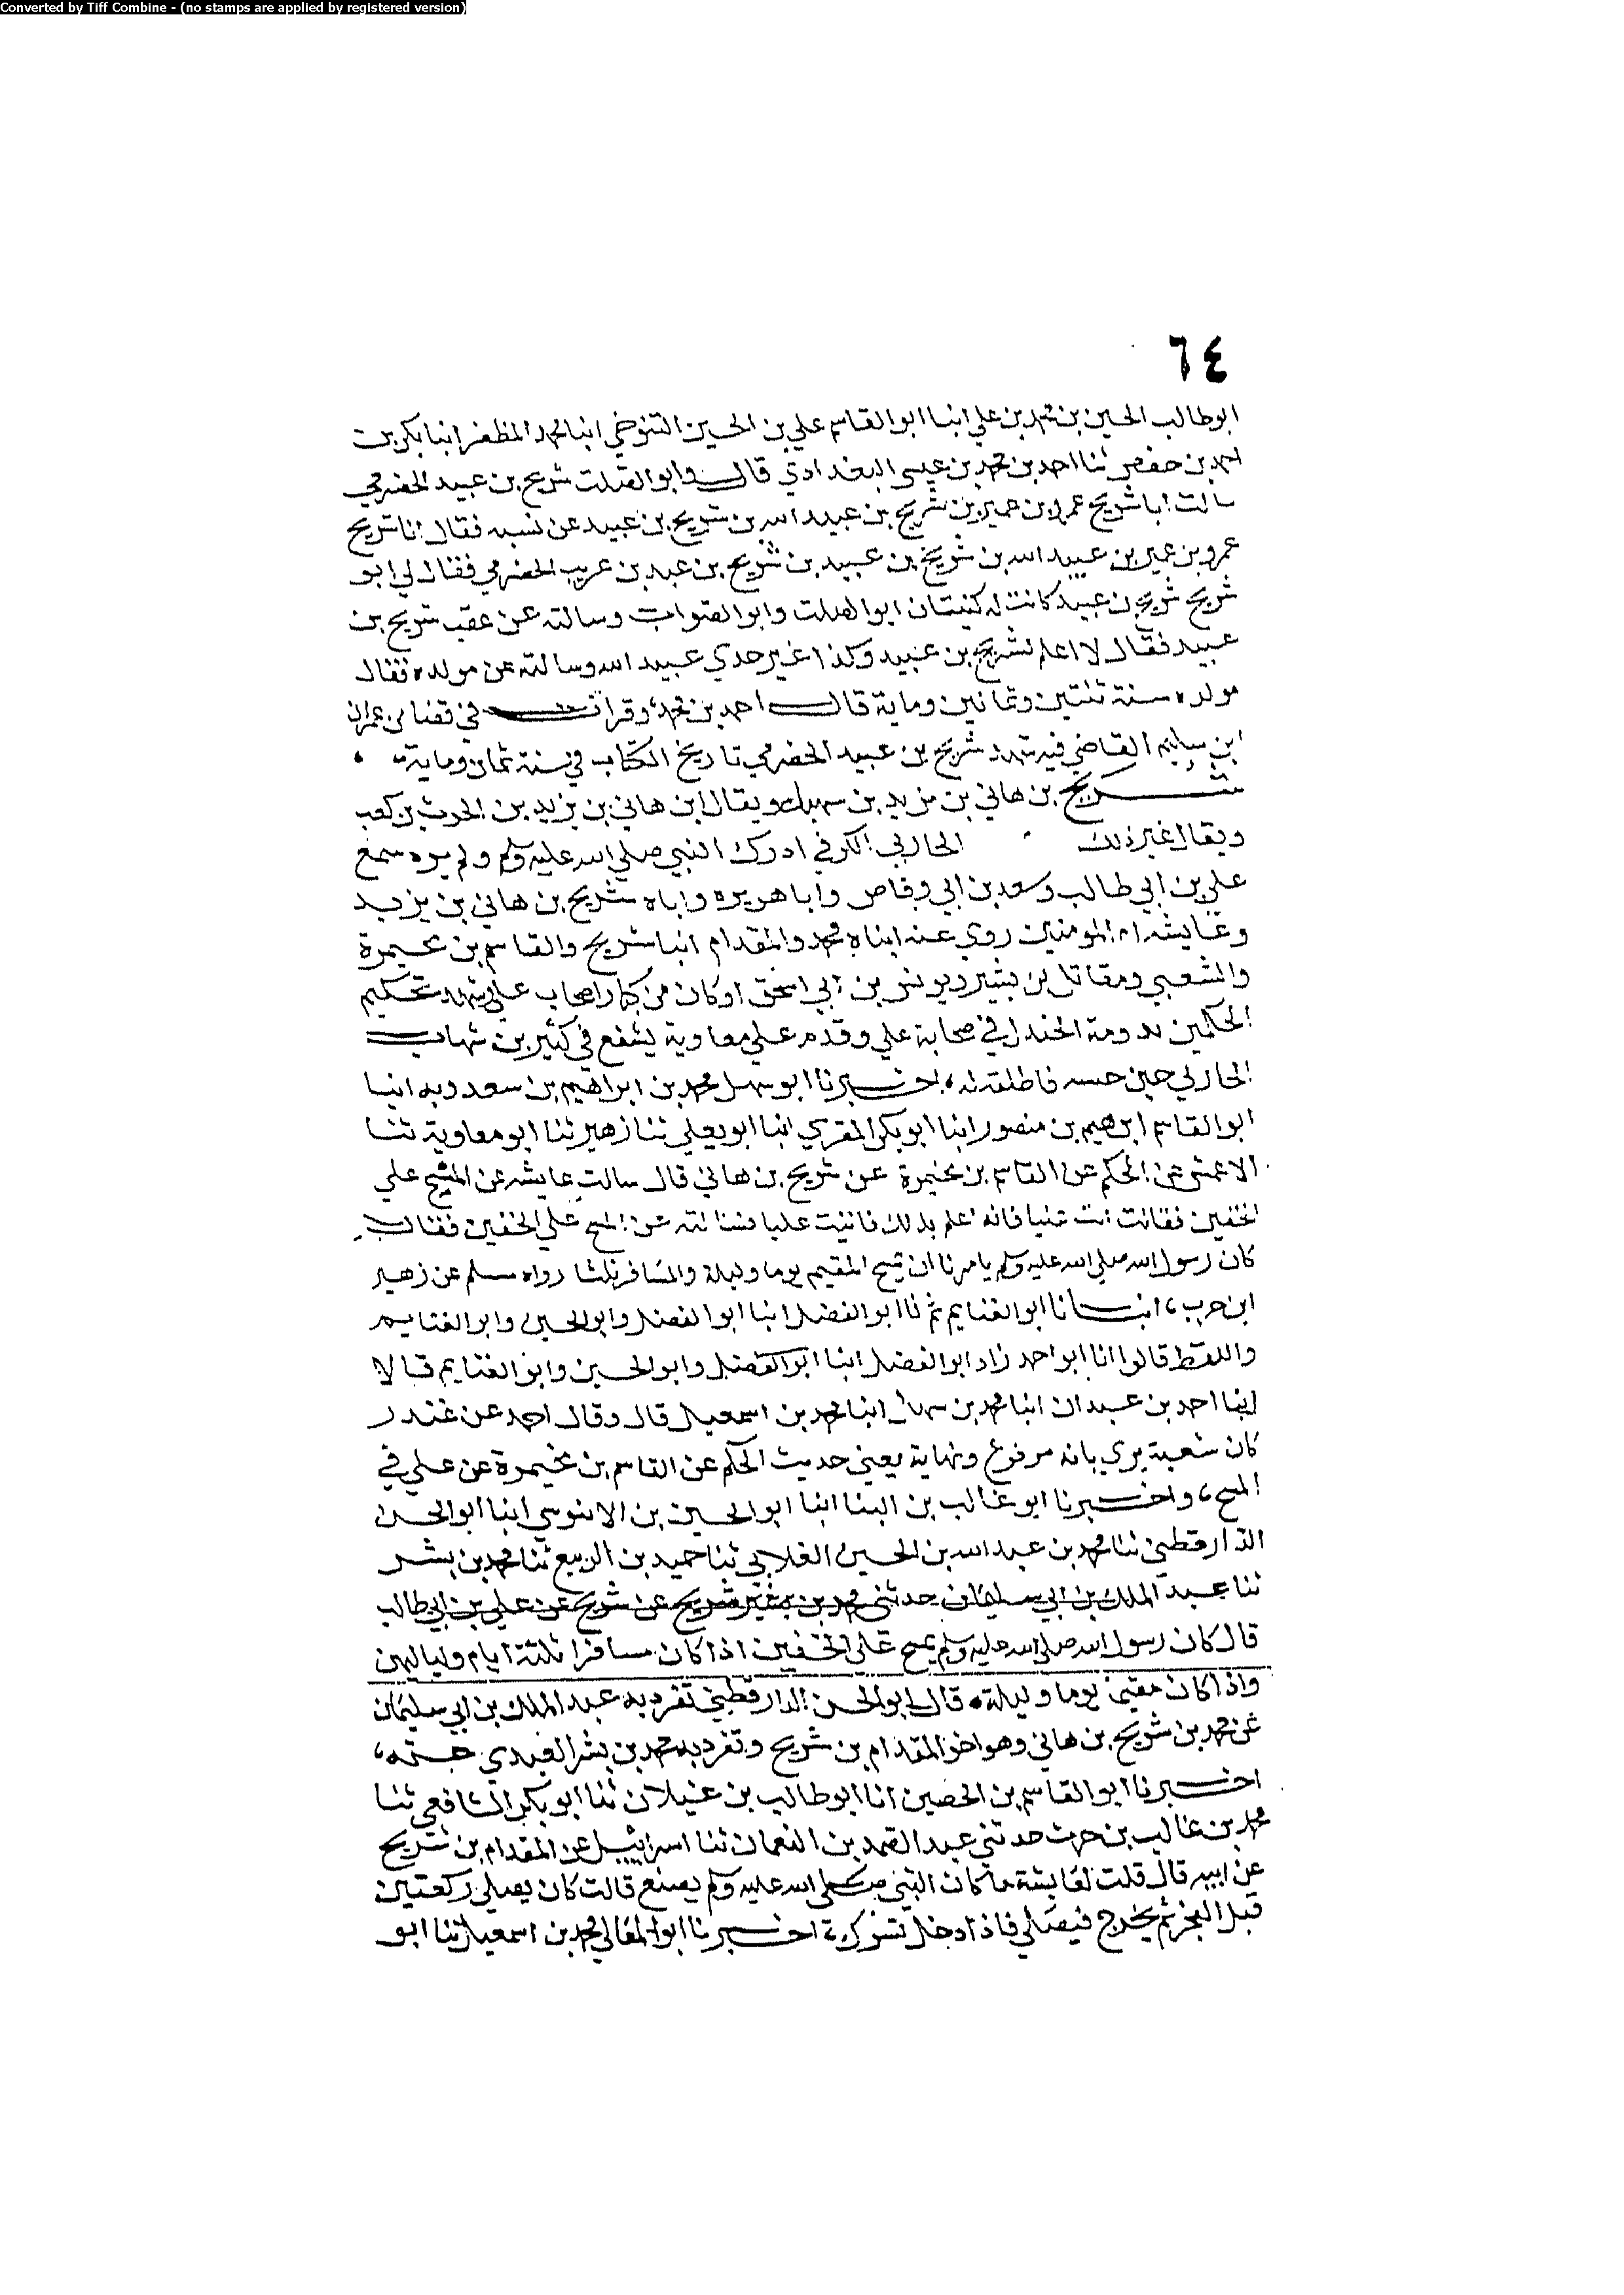 Converted by Tiff Combine - (no stamps are applied by registered version)
٦٤
ابو طالب الحسين بن محمد بن علي انبا ابو القاسم علي بن الحسين التنوخي انبا محمد المظفر انبا بكر بن
احمد بن حفص ثنا احمد بن محمد بن عيسى البغدادي قال وابو الصلت شريح بن عبيد الحضرمي
سالت ابا شريح عمرو بن عمير بن شريح بن عبيد الله بن شريح بن عبيد عن نسبه فقال انا شريح
عمرو بن عمير بن عبيد الله بن شريح بن عبيد بن شريح بن عبد بن عريب الحضرمي فقال لي ابو
شريح شريح بن عبيد كانت له كنيتان ابو الصلت وابو الصواب وسالته عن عقب شريح بن
عبيد فقال لا اعلم لشريح بن عبيد وكذا غير جدي عبيد الله وسالته عن مولده فقال
مولده سنة ثنتين وثمانين وماية قال احمد بن محمد وقرات في قضا عمران
ابن سليم القاضي فيه شهد شريح بن عبيد الحضرمي تاريخ الكتاب في سنة ثمان وماية
شريح بن هاني بن يزيد بن نهيك ويقال ابن هاني بن يزيد بن الحرث بن كعب
ويقال غير ذلك الحارثي الكوفي ادرك النبي صلي الله عليه وسلم ولم يره سمع
علي بن ابي طالب وسعد بن ابي وقاص وابا هريره واباه شريح بن هاني بن يزيد
وعايشه ام المومنين روي عنه ابناه محمد والمقدام انبا شريح والقاسم بن مخيمرة
والشعبي ومقاتل بن بشير ويونس بن ابي اسحق اوكان من كبار اصحاب علي وشهد تحكيم
الحكمين بدومة الجندل في صحابة علي وقدم علي معاوية يشفع في كثير بن شهاب
الحارثي حين حبسه فاطلقه له، اخبرنا ابو سهل محمد بن ابراهيم بن سعدويه انبا
ابو القاسم ابرهيم بن منصور انبا ابو بكر المقري انبا ابو يعلي ثنا زهير ثنا ابو معاوية ثنا
الاعمش عن الحكم عن القاسم بن مخيمرة عن شريح بن هاني قال سالت عايشه عن المسح علي
الخفين فقالت ات عليا فانه اعلم بذلك فاتيت عليا فسالته عن المسح علي الخفين فقال
كان رسول الله صلي الله عليه وسلم يامرنا ان يمسح المقيم يوما وليلة والمسافر ثلثا رواه مسلم عن زهير
ابن حرب، انبانا ابو الغنايم ثم نا ابو الفضل انبا ابو الفضل وابو الحسين وابو الغنايم
واللفظ قالوا انا ابو احمد زاد ابو الفضل انبا ابو الفضل وابو الحسين وابو الغنايم قالا
انبا احمد بن عبدان انبا محمد بن سهل انبا محمد بن اسمعيل قال وقال احمد عن غندر
كان شعبة يري بانه مرفوع ونهاية يعني حديث الحكم عن القاسم بن مخيمرة عن علي في
المسح، واخبرنا ابو غالب بن البنا انبا ابو الحسين بن الابنوسي انبا ابو الحسن
الدارقطني ثنا محمد بن عبد الله بن الحسين العلاني ثنا حميد بن الربيع ثنا محمد بن بشر
ثنا عبد الملك بن ابي سليمان حدثني محمد بن شريح عن شريح عن علي بن ابي طالب
قال كان رسول الله صلي الله عليه وسلم يمسح على الخفين اذا كان مسافرا ثلثة ايام ولياليهن
واذا كان مقيما يوما وليلة، قال ابو الحسن الدارقطني تفرد به عبد الملك بن ابي سليمان
عن محمد بن شريح بن هاني وهو اخو المقدام بن شريح وتفرد به محمد بن بشر العبدي عنه،
اخبرنا ابو القاسم بن الحصين انا ابو طالب بن غيلان ثنا ابو بكر الشافعي ثنا
محمد بن غالب بن حرب حدثني عبد الصمد بن النعمان ثنا اسرائيل عن المقدام بن شريح
عن ابيه قال قلت لعايشة ما كان النبي صلى الله عليه وسلم يصنع قالت كان يصلي ركعتين
قبل الفجر ثم يخرج فيصلي فاذا دخل تسوك، اخبرنا ابو المعالي محمد بن اسمعيل ثنا ابو